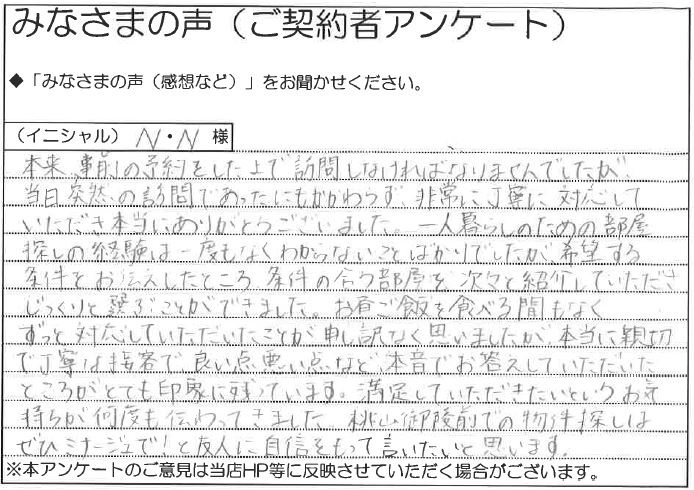 みなさまの声（ご契約者アンケート）
◆「みなさまの声（感想など）」をお聞かせください。
（イニシャル） N・N 様
本来、事前の予約をした上で訪問しなければなりませんでしたが、
当日突然の訪問であったにもかかわらず、非常に丁寧に対応して
いただき本当にありがとうございました。一人暮らしのための部屋
探しの経験は一度もなくわからないことばかりでしたが、希望する
条件をお伝えしたところ条件の合う部屋を次々と紹介していただき
じっくりと選ぶことができました。お昼ご飯を食べる間もなく
ずっと対応していただいたことが申し訳なく思いましたが、本当に親切
で丁寧な接客で良い点悪い点など、本音でお答えしていただいた
ところがとても印象に残っています。満足していただきたいというお気
持ちが何度も伝わってきました。桃山御陵前での物件探しは
ぜひミナージュで！と友人に自信をもって言いたいと思います。
※本アンケートのご意見は当店HP等に反映させていただく場合がございます。